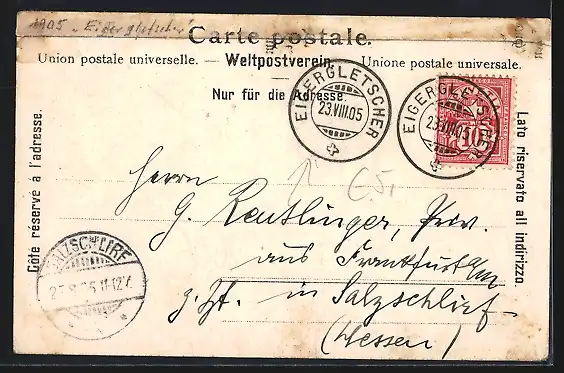 1905 "Eigergletscher"
Carte postale.
Union postale universelle. — Weltpostverein. — Unione postale universale.
Nur für die Adresse.
Côte réservé à l'adresse.
Lato riservato all indirizzo.
EIGERGLETSCHER
23.VIII.05
EIGERGLETSCHER
23.VIII.05
10
Herrn
G. Reutlinger, Priv.
aus Frankfurt a/M
z. Zt. in Salzschlirf
(Hessen)
SALZSCHLIRF